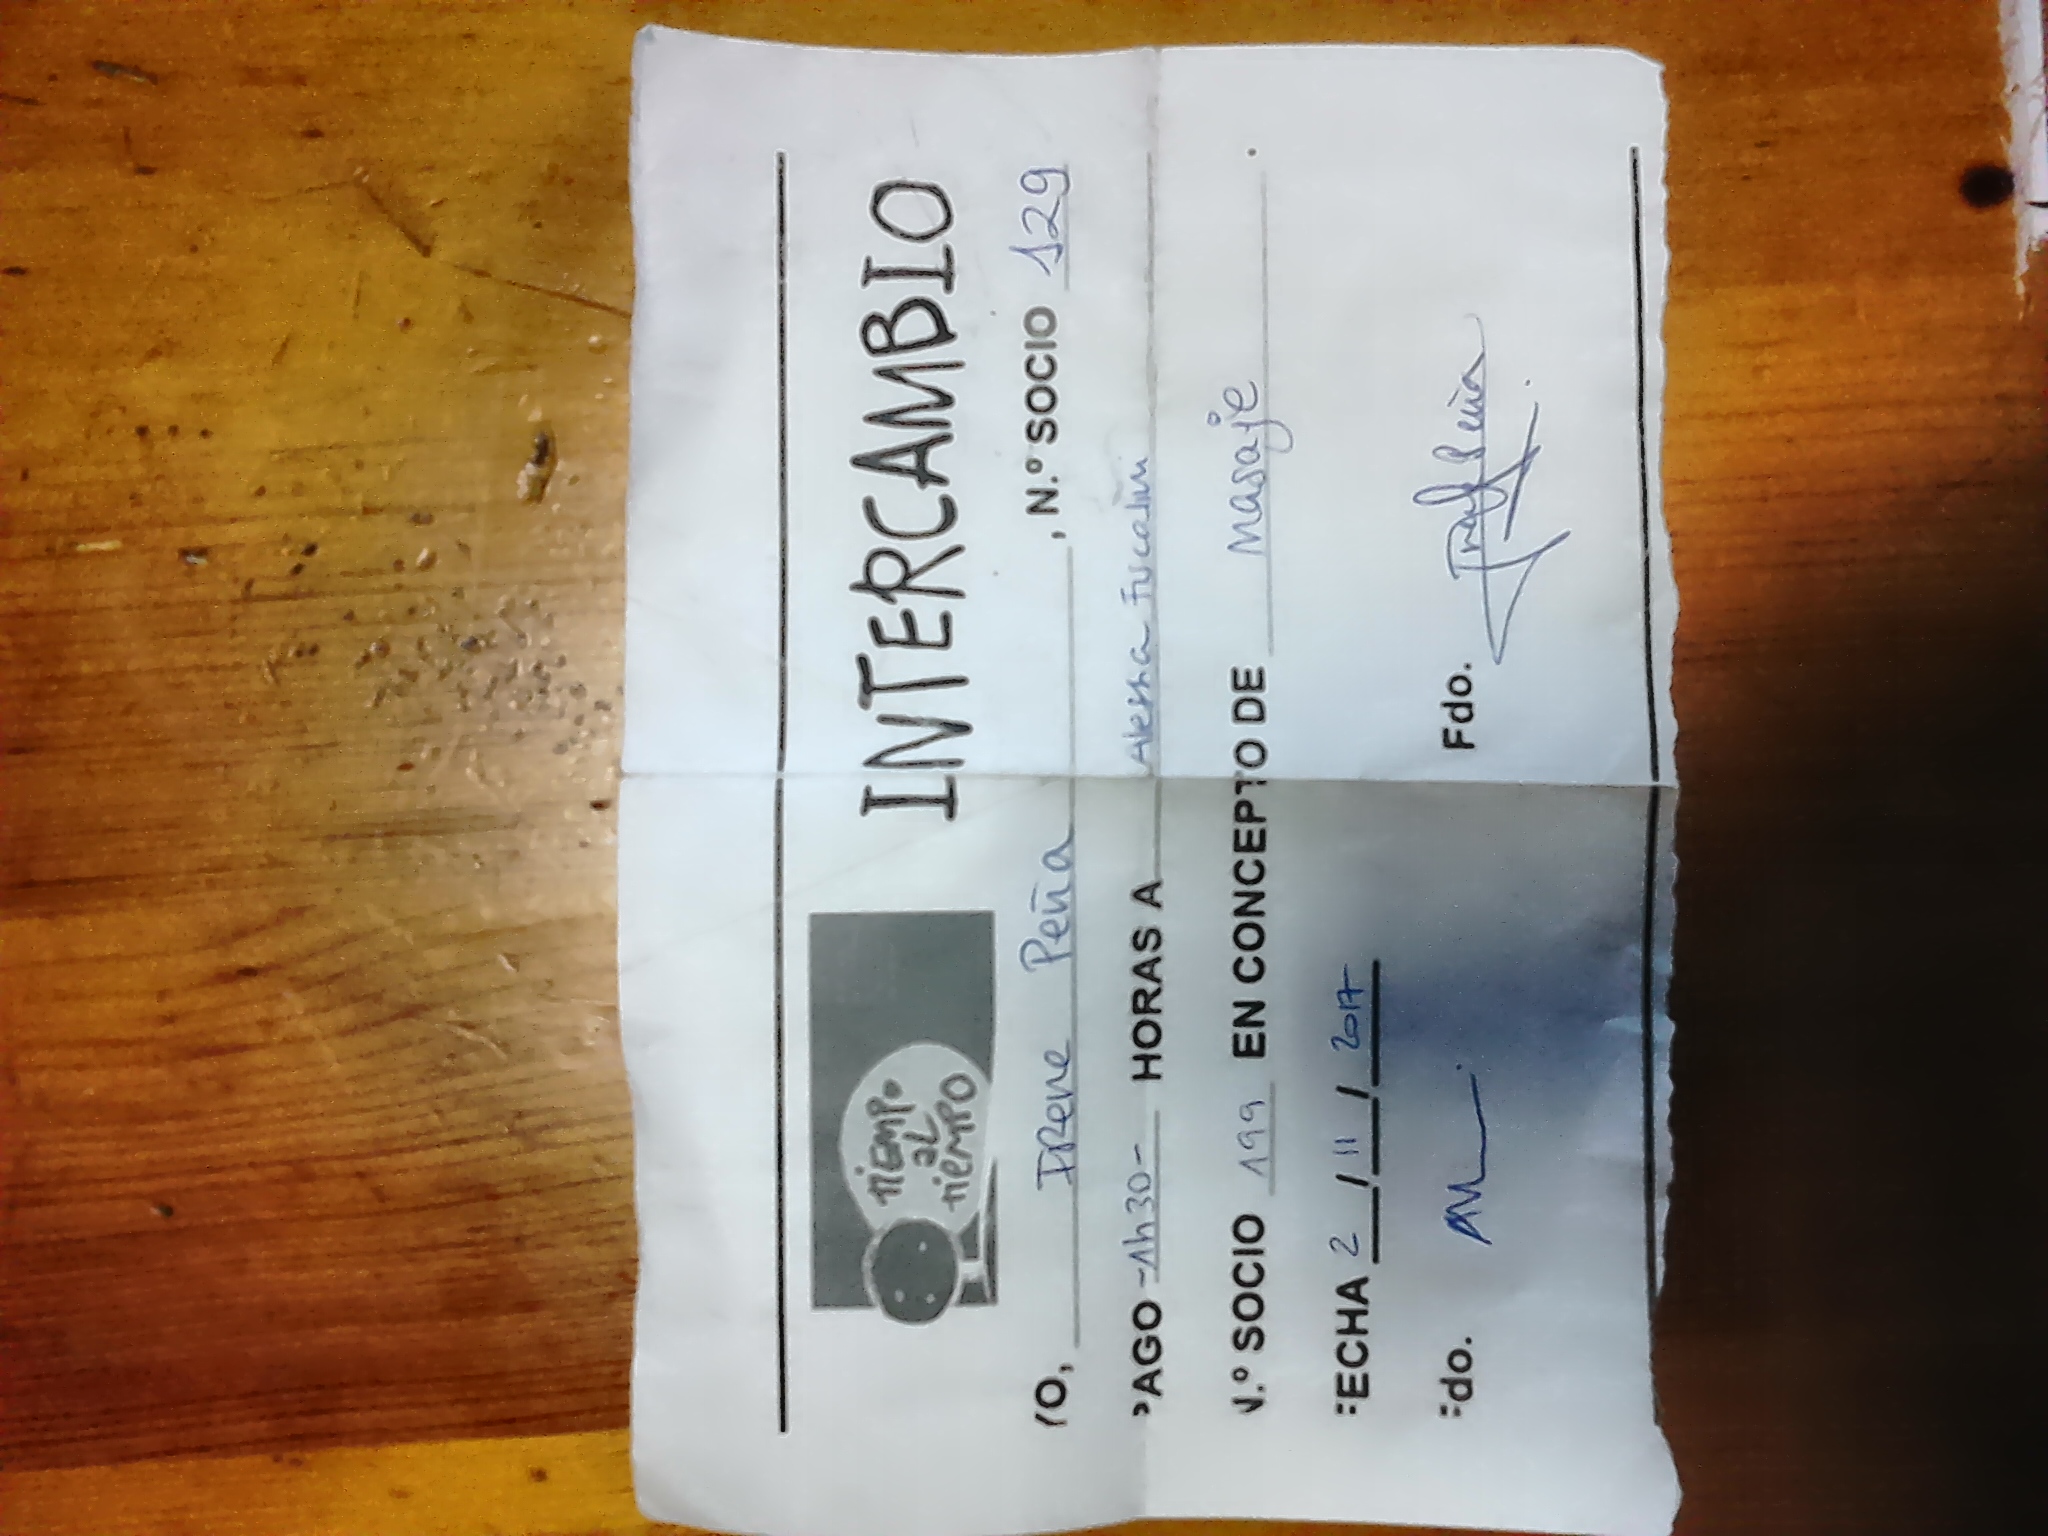 TIEMPO
AL
TIEMPO
INTERCAMBIO
YO, IRENE Peña, N.º SOCIO 129
PAGO -1h30- HORAS A
N.º SOCIO 199 EN CONCEPTO DE Masaje.
FECHA 2/11/2017
Fdo. Fdo.